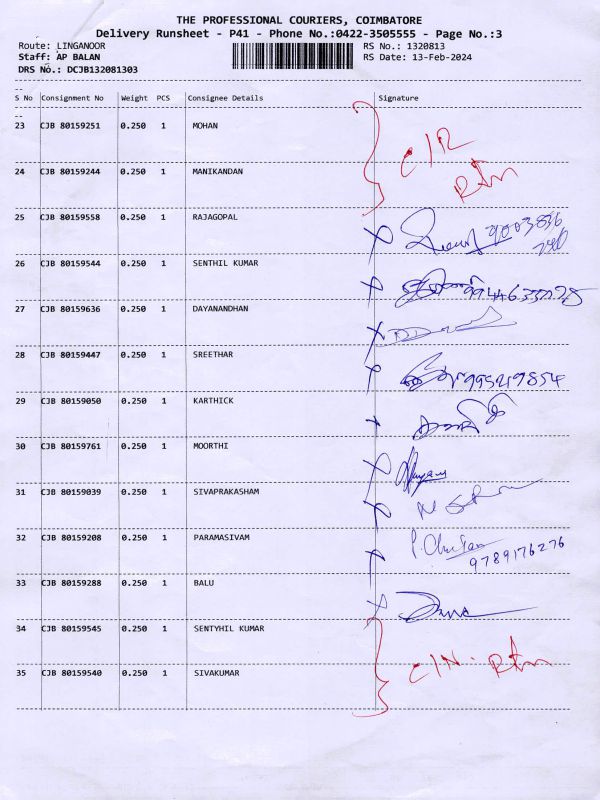 THE PROFESSIONAL COURIERS, COIMBATORE
Delivery Runsheet - P41 - Phone No.:0422-3505555 - Page No.:3
Route: LINGANOOR RS No.: 1320813
Staff: AP BALAN RS Date: 13-Feb-2024
DRS No.: DCJB132081303
S No Consignment No Weight PCS Consignee Details Signature
23 CJB 80159251 0.250 1 MOHAN
C/R
24 CJB 80159244 0.250 1 MANIKANDAN
Rtn
25 CJB 80159558 0.250 1 RAJAGOPAL
26 CJB 80159544 0.250 1 SENTHIL KUMAR
27 CJB 80159636 0.250 1 DAYANANDHAN
28 CJB 80159447 0.250 1 SREETHAR
29 CJB 80159050 0.250 1 KARTHICK
30 CJB 80159761 0.250 1 MOORTHI
31 CJB 80159039 0.250 1 SIVAPRAKASHAM
32 CJB 80159208 0.250 1 PARAMASIVAM
9789176276
33 CJB 80159288 0.250 1 BALU
34 CJB 80159545 0.250 1 SENTYHIL KUMAR
35 CJB 80159540 0.250 1 SIVAKUMAR
C/N. Rtn